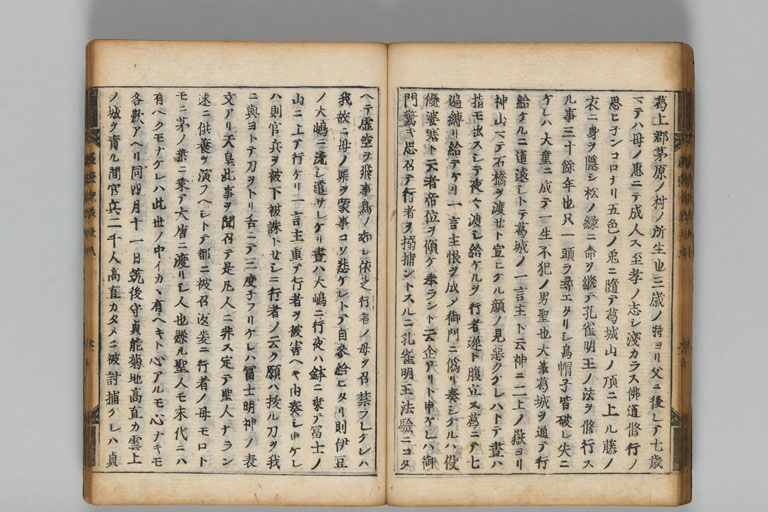 葛上郡茅原ノ村ノ所生也三歳ノ時ヨリ父ニ後レテ七歳
マテハ母ノ恵ニテ成人ス至孝ノ志シ浅カラス佛道修行ノ
思ヒネンコロナリ五色ノ兎ニ随テ葛城山ノ頂ニ上ル藤ノ
衣ニ身ヲ隠シ松ノ緑ニ命ヲ継テ孔雀明王ノ法ヲ修行ス
ル事三十餘年也只一頭ラ尋エタリシ烏帽子皆破レ失ニ
ケレハ大童ニ成テ一生不犯ノ男聖也大峯葛城ヲ通テ行
給ケルニ道遠シトテ葛城ノ一言主ト云神ニ二上ノ嶽ヨリ
神山マテ石橋ヲ渡セト宣ヒケル顔ノ見悪クケレハトテ晝ハ
指モ出スシテ夜々渡シ給ケルヲ行者遅ト腹立ス葛ニテ七
遍縛リ給テケリ一言主恨ヲ成シ御門ニ偽リ奏シケルハ役
優婆塞ト云者帝位ヲ傾ケ奉ラント云企アリト申ケレハ御
門驚キ思召テ行者ヲ搦捕ントスルニ孔雀明王ノ法驗ニコタ
ヘテ虚空ヲ飛事鳥ノ如シ依之行者ノ母ヲ召禁ラレケレハ
我故ニ母ノ罪ヲ蒙事コソ悲ケレトテ自参給ヒタリ則伊豆
ノ大嶋ニ流シ遣サレケリ晝ハ大嶋ニ行夜ハ鉢ニ乗テ冨士ノ
山ニ上テ行ケリ一言主重テ行者ヲ被害ヘキ由奏シ申ケレ
ハ則官兵ヲ被下被誅トセシニ行者ノ云ク願ハ抜ル刀ヲ我
ニ與ヨトテ刀ヲトリ舌ニテ三度子フリケレハ冨士明神ノ表
文アリ天皇此事ヲ聞召テ是凡人ニ非ス定テ聖人ナラン
速ニ供養ヲ演フヘシトテ都ニ被召返爰ニ行者ノ母モロト
モニ茅ノ葉ニ乗テ大唐ニ渡リシ人也懸ル聖人モ末代ニハ
有ヘクモナケレハ此世ノ中イカヽ有ヘキト心アルモ心ナキモ
各歎アヘリ同四月十一日筑後守貞能菊地高直カ雲上
ノ城ヲ責ル間官兵二千人高直カタメニ被討捕ケレハ貞